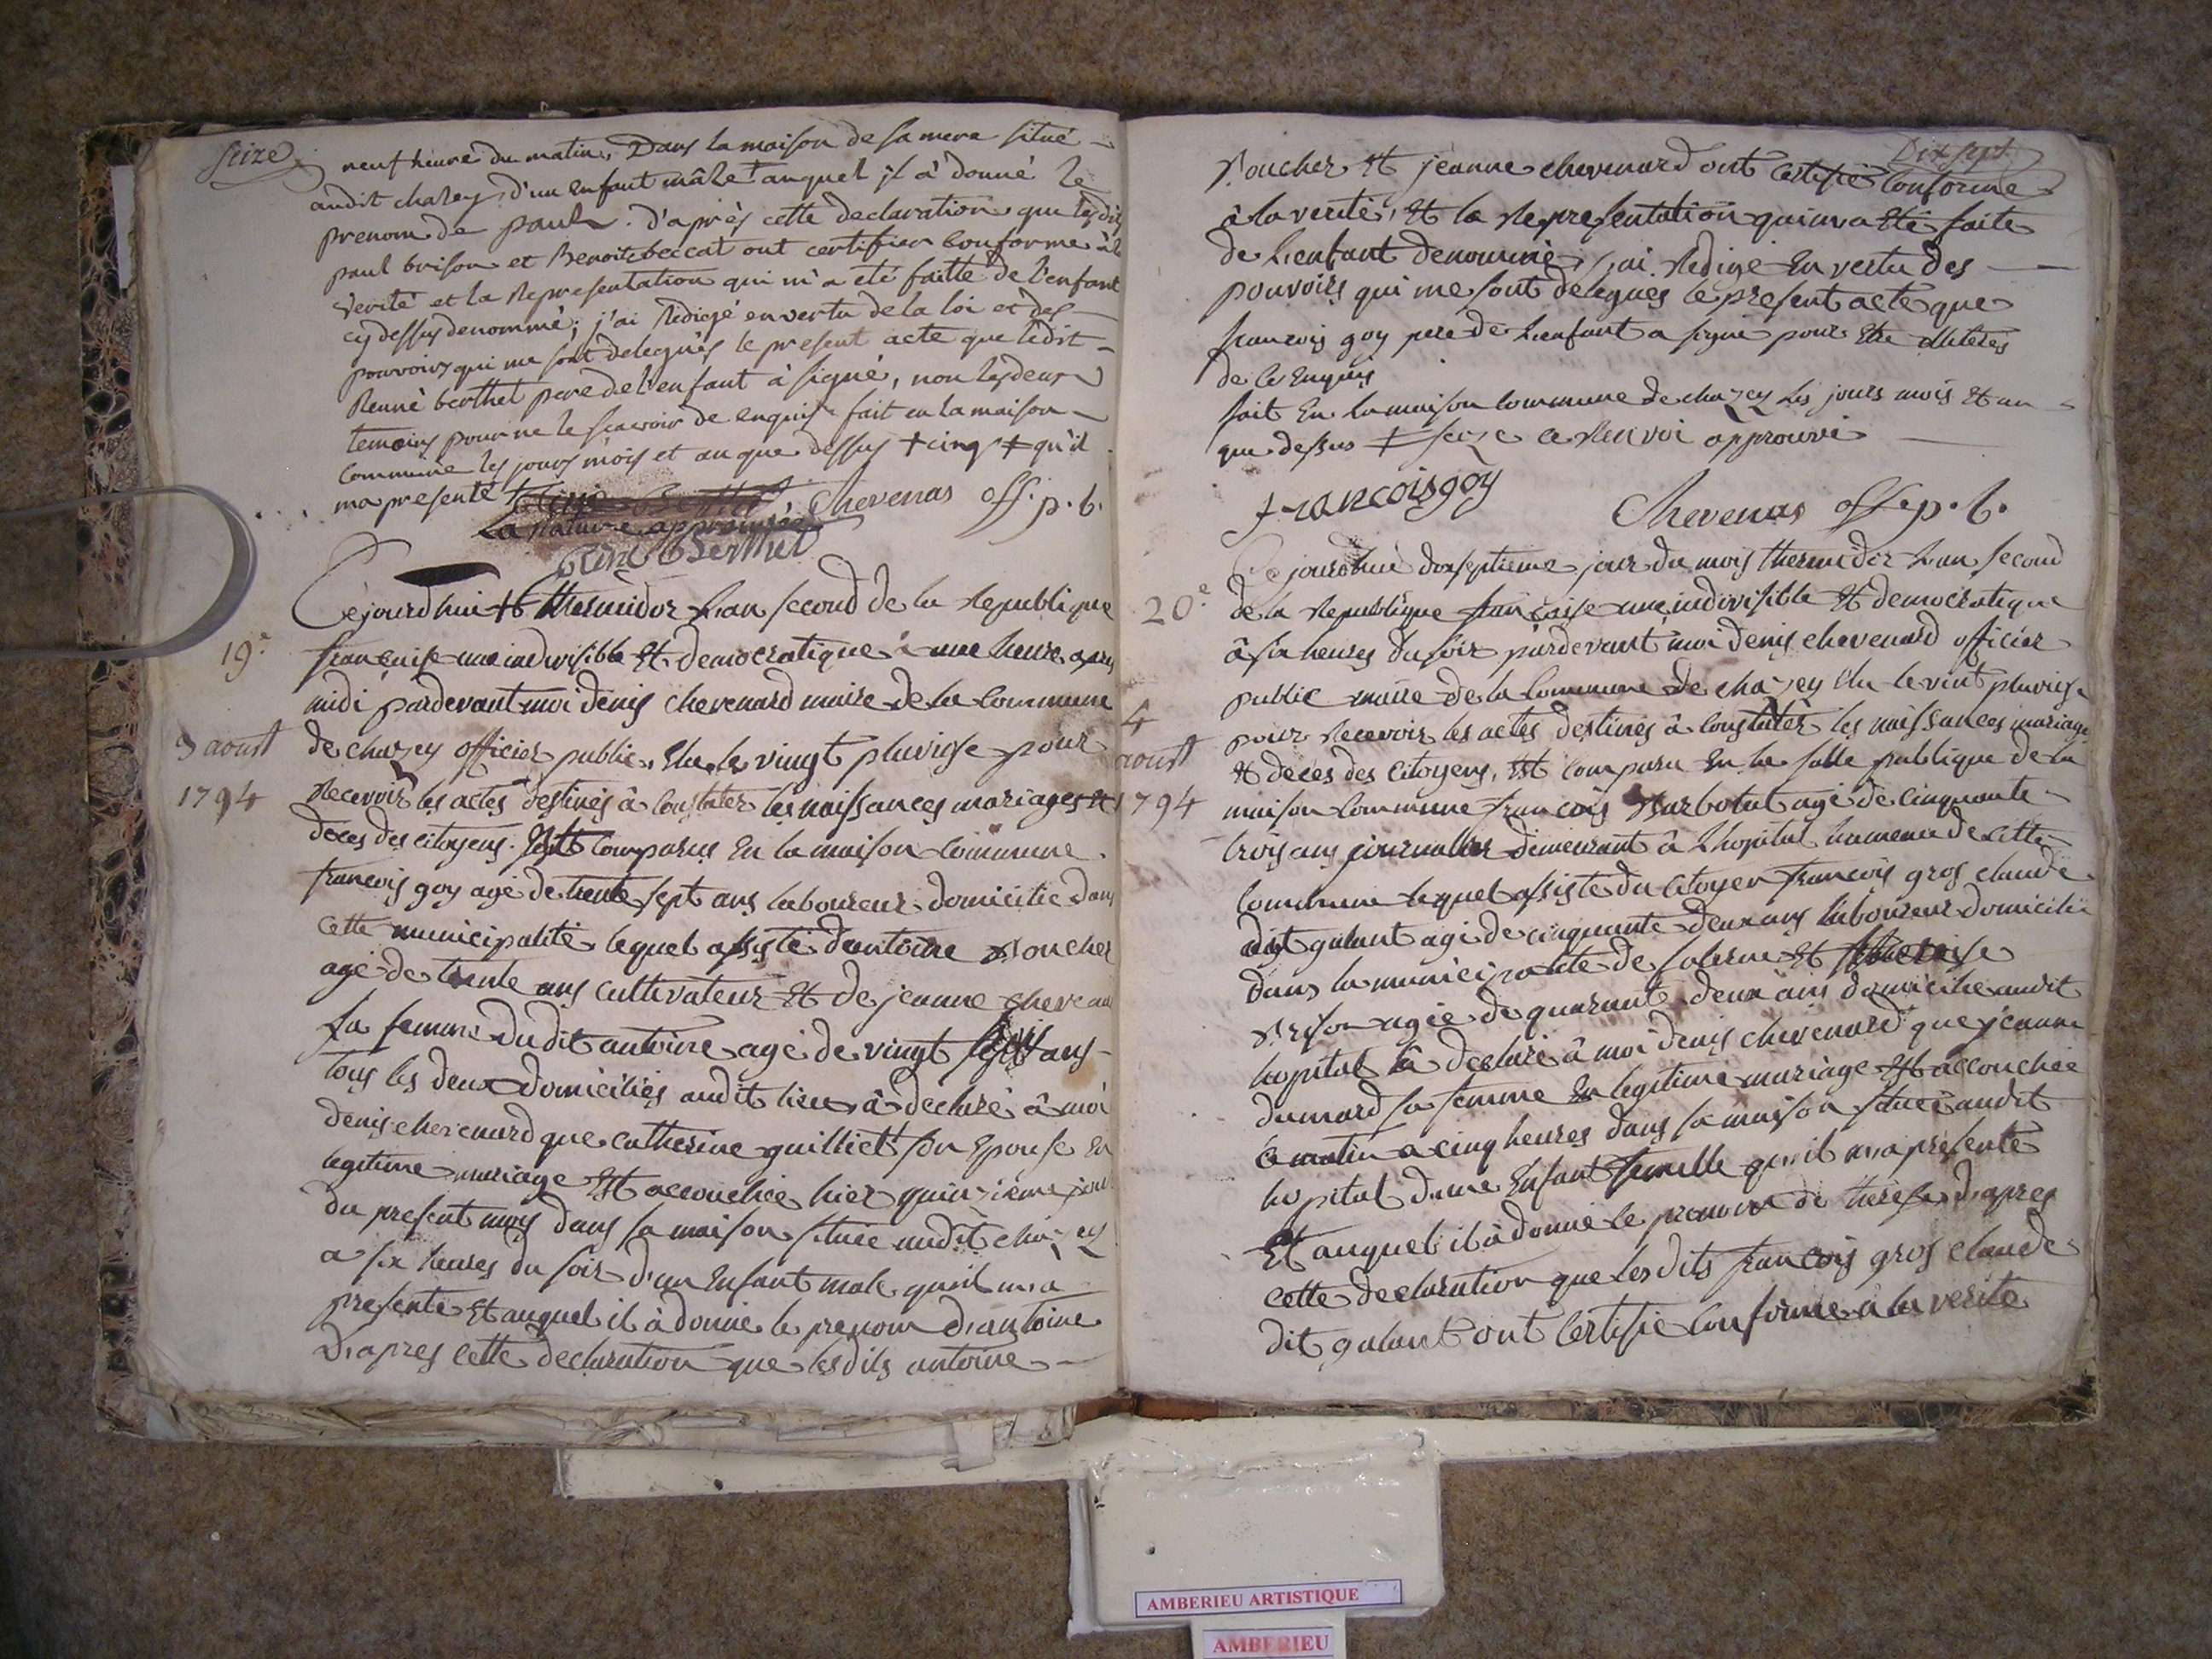 Seize
neuf heure du matin, Dans la maison de sa mere situé
audit chazey, d'un enfant mâle + auquel jl à donné le
prenom de paul. D'après cette declaration que lesdit
paul brison et Benoite beccat ont certifier conforme à la
verité et la Representation qui m'a été faitte de l'enfant
cy dessus denommé; j'ai Redigé en vertu de la loi et des
pouvoirs qui me sont delegués le present acte que ledit
Renné berthet pere de l'enfant à signé, non les deux
temoins pour ne le scavoir de enquis fait en la maison
commune les jours mois et an que dessus + cinq ‡ qu'il
ma presenté
Chevenas off. p. b.
La Rature approuvée
René Berthet
19.e
3 aoust
1794
Cejourdhui 16 thermidor l'an second de la Republique
francaise une indivisible Et democratique à une heure apres
midi pardevant moi denis chevenard maire de la commune
de chazey officier public. Elu le vingt pluviose pour
Recevoir les actes destinés à constater les naissances mariages et
deces des citoyens. Est comparus En la maison commune
francois goy agé de trente sept ans laboureur domicilié dans
cette municipalité lequel assisté dantoine Voucher
agé de trente ans cultivateur Et de jeanne chevenard
sa femme dudit antoine agé de vingt ans
tous les deux domiciliés audit lieu à declaré à moi
denis chevenard que catherine guilliet son Epouse En
legitime mariage Est accouchée hier quinzieme jour
du present mois dans sa maison située audit chazey
a six heures du soir d'un Enfant male quil m'a
presenté Et auquel il à donné le prenom d'antoine
D'apres cette declaration que lesdits antoine
Dix sept
Voucher Et jeanne chevenard ont certifié conforme
à la verité, Et la Representation qui m'a Eté faite
de l'enfant denommé, j'ai Redigé En vertu des
pouvoirs qui me sont delegués le present acte que
francois goy pere de l'enfant a signé pour Etre illiterés
de ce Enquis
fait En la maison commune de chazey les jours mois Et an
que dessus ‡ seize ce Renvoi approuvé
francois goy
Chevenas off. p. b.
20.e
4
aoust
1794
Ce jourdhui dixseptieme jour du mois thermidor l'an second
de la Republique francaise une indivisible Et democratique
à six heures du soir pardevant moi denis chevenard officier
public maire de la commune de chazey Elu le vint pluviose
pour Recevoir les actes destinés à constater les naissances mariage
Et deces des citoyens, Est comparu En la salle publique de la
maison commune francois Barbotat agé de cinquante
trois ans journallier demeurant à l'hopital hameau de cette
commune lequel assisté du citoyen francois gros claude
dit galant agé de cinquante deux ans laboureur domicilié
dans la municipalité de Et
Brison agée de quarant deux ans domiciliée audit
hopital à declaré à moi denis chevenard que jeanne
dumard sa femme En legitime mariage Est accouchée
ce matin a cinq heures dans sa maison située audit
hopital d'une Enfant femelle qu'il m'a presenté
Et auquel il à donné le prenom de therese D'apres
cette declaration que lesdits francois gros claude
dit galant ont certifié conforme à la verité
AMBERIEU ARTISTIQUE
AMBERIEU